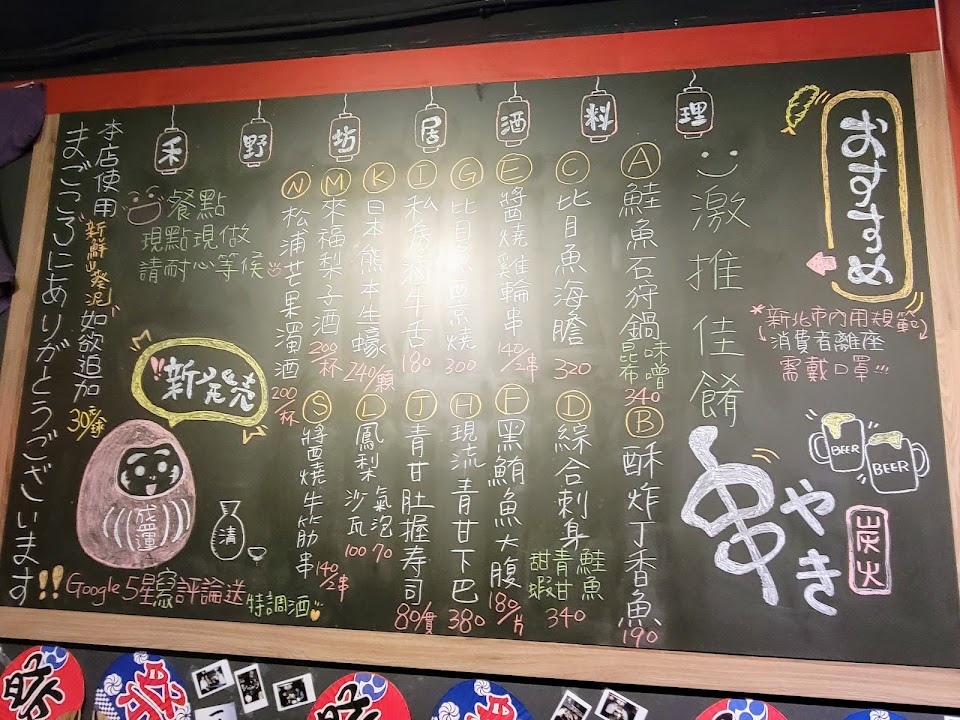 禾野坊居酒料理
おすすめ
*新北市內用規範
消費者離座
需戴口罩!!!
激推佳餚
串やき
炭火
BEER
BEER
A 鮭魚石狩鍋 味噌 昆布 340
B 酥炸丁香魚 190
C 比目魚海膽 320
D 綜合刺身 鮭魚 青甘 甜蝦 340
E 醬燒雞輪串 140/2串
F 黑鮪魚大腹 180/片
G 比目魚 燒 300
H 現流青甘下巴 380
I 私房 牛舌 180
J 青甘肚握寿司 80/貫
K 日本熊本生蠔 240/顆
L 鳳梨 氣泡 70 沙瓦 100
M 來福梨子酒 200/杯
N 松浦芒果濁酒 200/杯
S 醬燒牛筋串 140/2串
餐點
現點現做
請耐心等候
新発売
盛運
清
本店使用"新鮮山葵泥"如欲追加30元/球
まごころにありがとうございます!!
Google 5星 評論送特調酒
祭
祭
祭